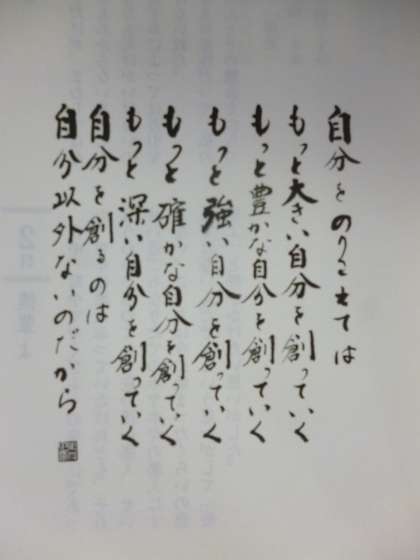 自分をのりこえては
もっと大きい自分を創っていく
もっと豊かな自分を創っていく
もっと強い自分を創っていく
もっと確かな自分を創っていく
もっと深い自分を創っていく
自分を創るのは
自分以外ないのだから